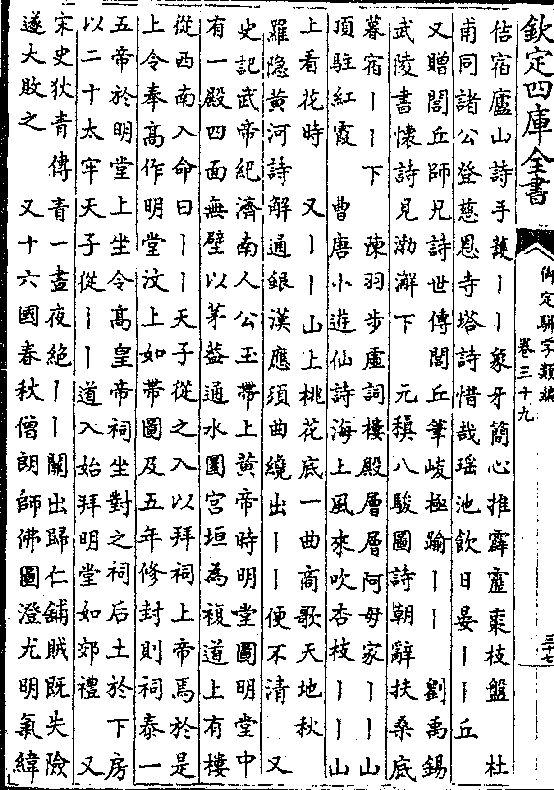 欽定四庫全書
御定駢字類編
卷三十九
三十七
佶宿廬山詩手䕶丨丨象牙簡心推霹靂棗枝盤　杜
甫同諸公登慈恩寺塔詩惜哉瑶池飲日晏丨丨丘
又贈閭丘師兄詩世傳閭丘筆峻極踰丨丨　劉禹錫
武陵書懷詩見渤澥下　元稹八駿圖詩朝辭扶桑底
暮宿丨丨下　陳羽步虛詞樓殿層層阿母家丨丨山
頂駐紅霞　曹唐小遊仙詩海上風來吹杏枝丨丨山
上看花時　又丨丨山上桃花底一曲商歌天地秋
羅隐黄河詩解通銀漢應須曲繞出丨丨便不清　又
史記武帝紀濟南人公玉帶上黄帝時明堂圖明堂中
有一殿四面無壁以茅葢通水圜宮垣為複道上有樓
從西南入命曰丨丨天子從之入以拜祠上帝焉於是
上令奉髙作明堂汶上如帶圖及五年修封則祠泰一
五帝於明堂上坐令髙皇帝祠坐對之祠后土於下房
以二十太牢天子從丨丨道入始拜明堂如郊禮　又
宋史狄青傳青一晝夜絶丨丨闗出歸仁鋪賊既失險
遂大敗之　又十六國春秋僧朗師佛圖澄尤明氣緯